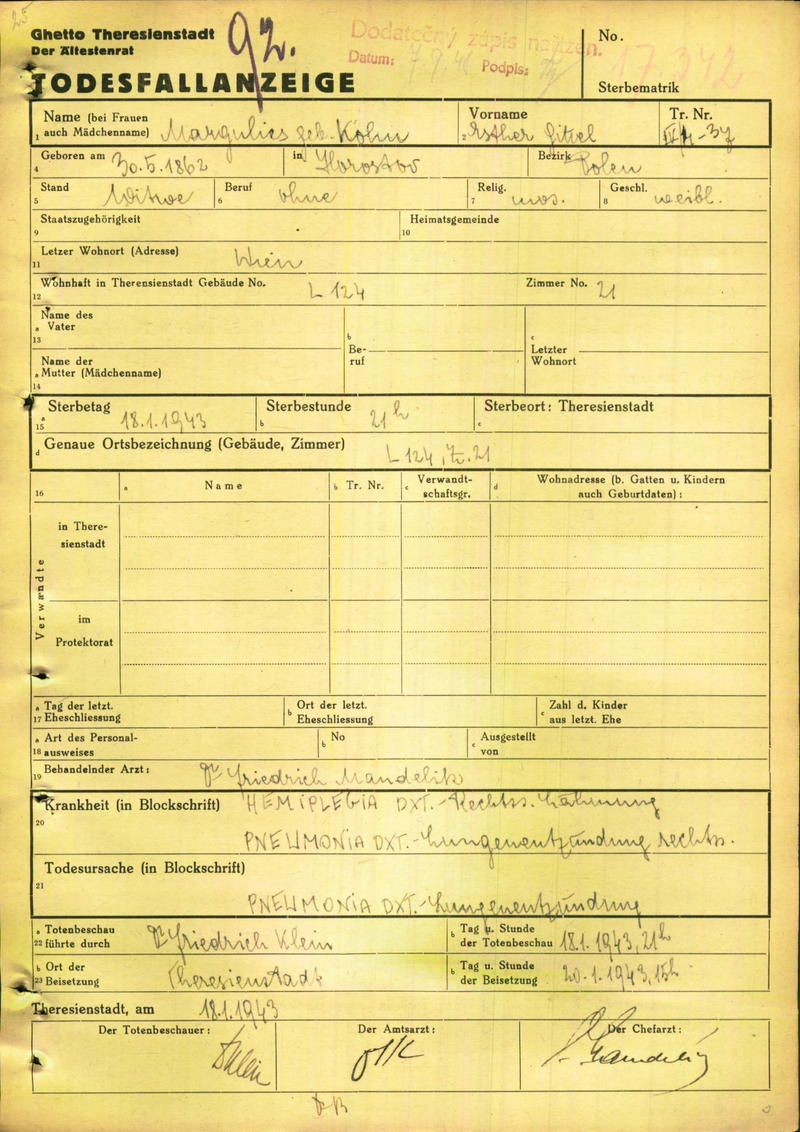 25
Ghetto Theresienstadt
Der Ältestenrat
92.
Dodatečný zápis nařízen.
Datum: 7. 9. 48 Podpis:
No. 17.342
TODESFALLANZEIGE
Sterbematrik
Name (bei Frauen auch Mädchenname) Margulies geb. Kohn
Vorname Esther Gittel
Tr. Nr. IV/4-37
1 2
Geboren am 30.5.1862 in Horostov Bezirk Polen
4
Stand Witwe Beruf ohne Relig. mos. Geschl. weibl.
5 6 7 8
Staatszugehörigkeit Heimatsgemeinde
9 10
Letzer Wohnort (Adresse) Wien
11
Wohnhaft in Theresienstadt Gebäude No. L 124 Zimmer No. 21
12
Name des
a Vater b c
13
Be- Letzter
ruf Wohnort
Name der
a Mutter (Mädchenname)
14
Sterbetag 18.1.1943 Sterbestunde 21h Sterbeort: Theresienstadt
a 15 b c
d Genaue Ortsbezeichnung (Gebäude, Zimmer) L 124, Z. 21
16 a Name b Tr. Nr. c Verwandt-schaftsgr. d Wohnadresse (b. Gatten u. Kindern auch Geburtdaten):
Verwandte
in There-
sienstadt
im
Protektorat
a Tag der letzt. b Ort der letzt. c Zahl d. Kinder
17 Eheschliessung Eheschliessung aus letzt. Ehe
a Art des Personal- b No c Ausgestellt
18 ausweises von
19 Behandelnder Arzt: Dr Friedrich Mandelik
Krankheit (in Blockschrift) HEMIPLEGIA DXT.-Rechts. Lähmung
20
PNEUMONIA DXT.-Lungenentzündung rechts.
Todesursache (in Blockschrift)
21
PNEUMONIA DXT.-Lungenentzündung
a Totenbeschau b Tag u. Stunde
22 führte durch Dr Friedrich Klein der Totenbeschau 18.1.1943, 21h
b Ort der b Tag u. Stunde
23 Beisetzung Theresienstadt der Beisetzung 20.1.1943, 15h
Theresienstadt, am 18.1.1943
Der Totenbeschauer: Der Amtsarzt: Der Chefarzt:
Klein